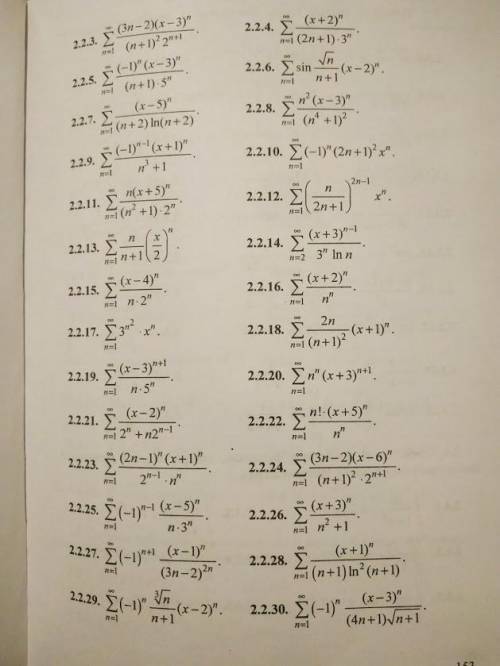 2.2.3. \sum_{n=1}^{\infty} \frac{(3n-2)(x-3)^n}{(n+1)^2 2^{n+1}}. 2.2.4. \sum_{n=1}^{\infty} \frac{(x+2)^n}{(2n+1)\cdot 3^n}.
2.2.5. \sum_{n=1}^{\infty} \frac{(-1)^n (x-3)^n}{(n+1)\cdot 5^n}. 2.2.6. \sum_{n=1}^{\infty} \sin \frac{\sqrt{n}}{n+1}(x-2)^n.
2.2.7. \sum_{n=1}^{\infty} \frac{(x-5)^n}{(n+2)\ln(n+2)}. 2.2.8. \sum_{n=1}^{\infty} \frac{n^2 (x-3)^n}{(n^4+1)^2}.
2.2.9. \sum_{n=1}^{\infty} \frac{(-1)^{n-1}(x+1)^n}{n^3+1}. 2.2.10. \sum_{n=1}^{\infty} (-1)^n (2n+1)^2 x^n.
2.2.11. \sum_{n=1}^{\infty} \frac{n(x+5)^n}{(n^2+1)\cdot 2^n}. 2.2.12. \sum_{n=1}^{\infty} \left(\frac{n}{2n+1}\right)^{2n-1} x^n.
2.2.13. \sum_{n=1}^{\infty} \frac{n}{n+1}\left(\frac{x}{2}\right)^n. 2.2.14. \sum_{n=2}^{\infty} \frac{(x+3)^{n-1}}{3^n \ln n}.
2.2.15. \sum_{n=1}^{\infty} \frac{(x-4)^n}{n\cdot 2^n}. 2.2.16. \sum_{n=1}^{\infty} \frac{(x+2)^n}{n^n}.
2.2.17. \sum_{n=1}^{\infty} 3^{n^2} \cdot x^n. 2.2.18. \sum_{n=1}^{\infty} \frac{2n}{(n+1)^2}(x+1)^n.
2.2.19. \sum_{n=1}^{\infty} \frac{(x-3)^{n+1}}{n\cdot 5^n}. 2.2.20. \sum_{n=1}^{\infty} n^n (x+3)^{n+1}.
2.2.21. \sum_{n=1}^{\infty} \frac{(x-2)^n}{2^n+n2^{n-1}}. 2.2.22. \sum_{n=1}^{\infty} \frac{n!\cdot(x+5)^n}{n^n}.
2.2.23. \sum_{n=1}^{\infty} \frac{(2n-1)^n (x+1)^n}{2^{n-1}\cdot n^n}. 2.2.24. \sum_{n=1}^{\infty} \frac{(3n-2)(x-6)^n}{(n+1)^2 \cdot 2^{n+1}}.
2.2.25. \sum_{n=1}^{\infty} (-1)^{n-1} \frac{(x-5)^n}{n\cdot 3^n}. 2.2.26. \sum_{n=1}^{\infty} \frac{(x+3)^n}{n^2+1}.
2.2.27. \sum_{n=1}^{\infty} (-1)^{n+1} \frac{(x-1)^n}{(3n-2)^{2n}}. 2.2.28. \sum_{n=1}^{\infty} \frac{(x+1)^n}{(n+1)\ln^2(n+1)}.
2.2.29. \sum_{n=1}^{\infty} (-1)^n \frac{\sqrt[3]{n}}{n+1}(x-2)^n. 2.2.30. \sum_{n=1}^{\infty} (-1)^n \frac{(x-3)^n}{(4n+1)\sqrt{n+1}}.